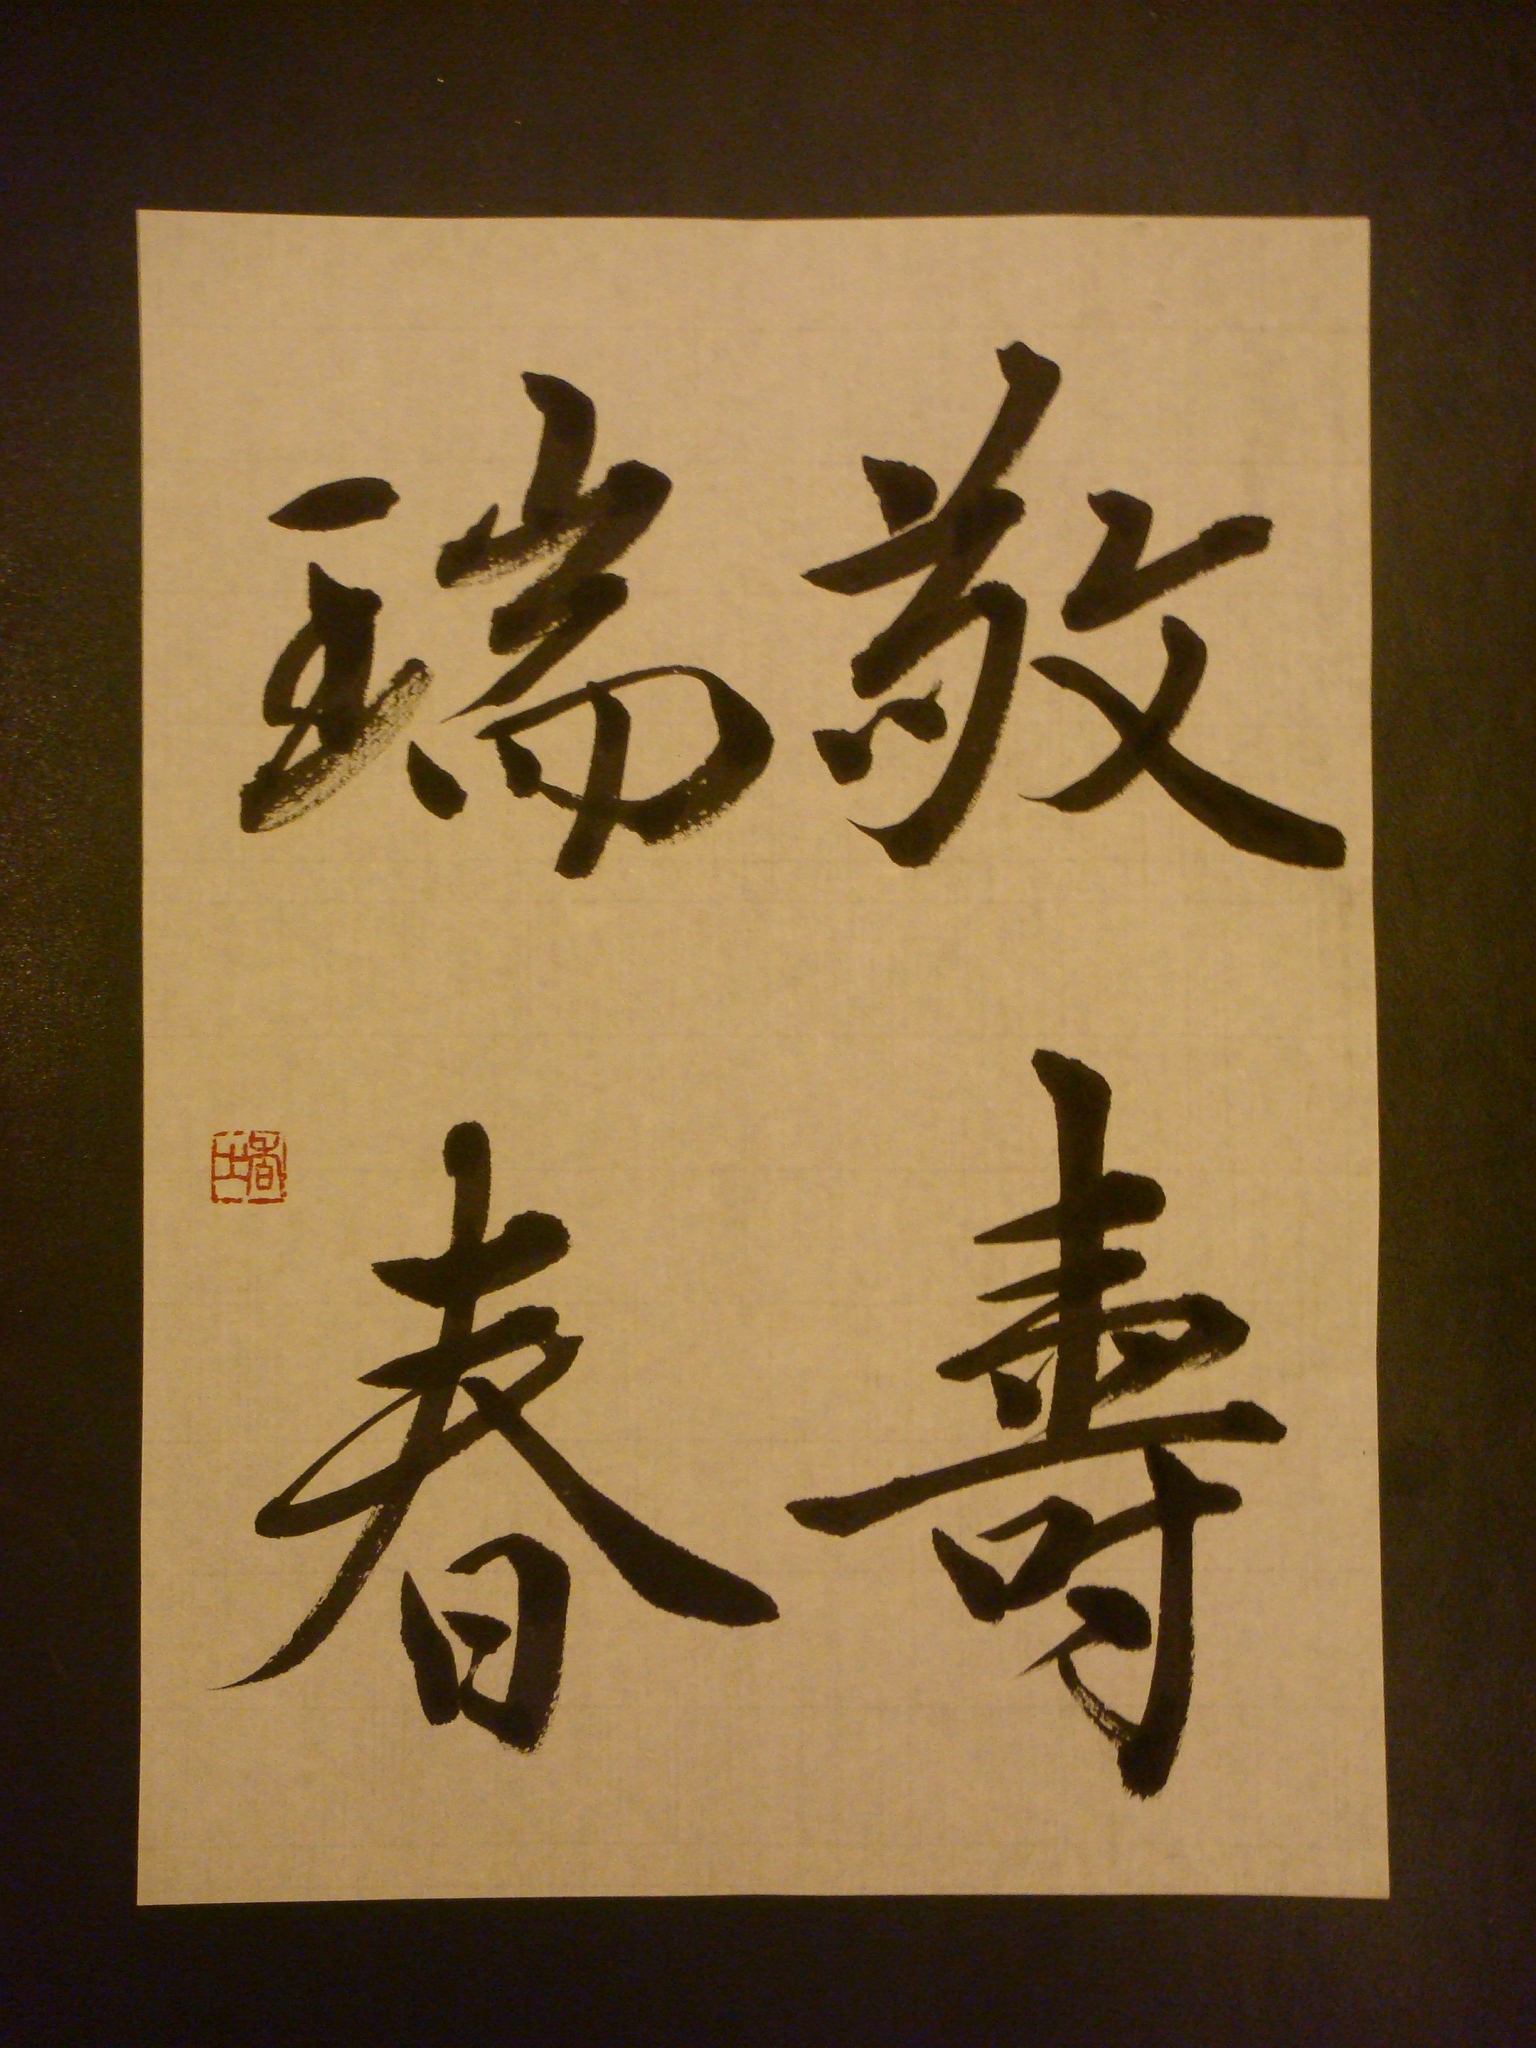 敬壽
瑞春